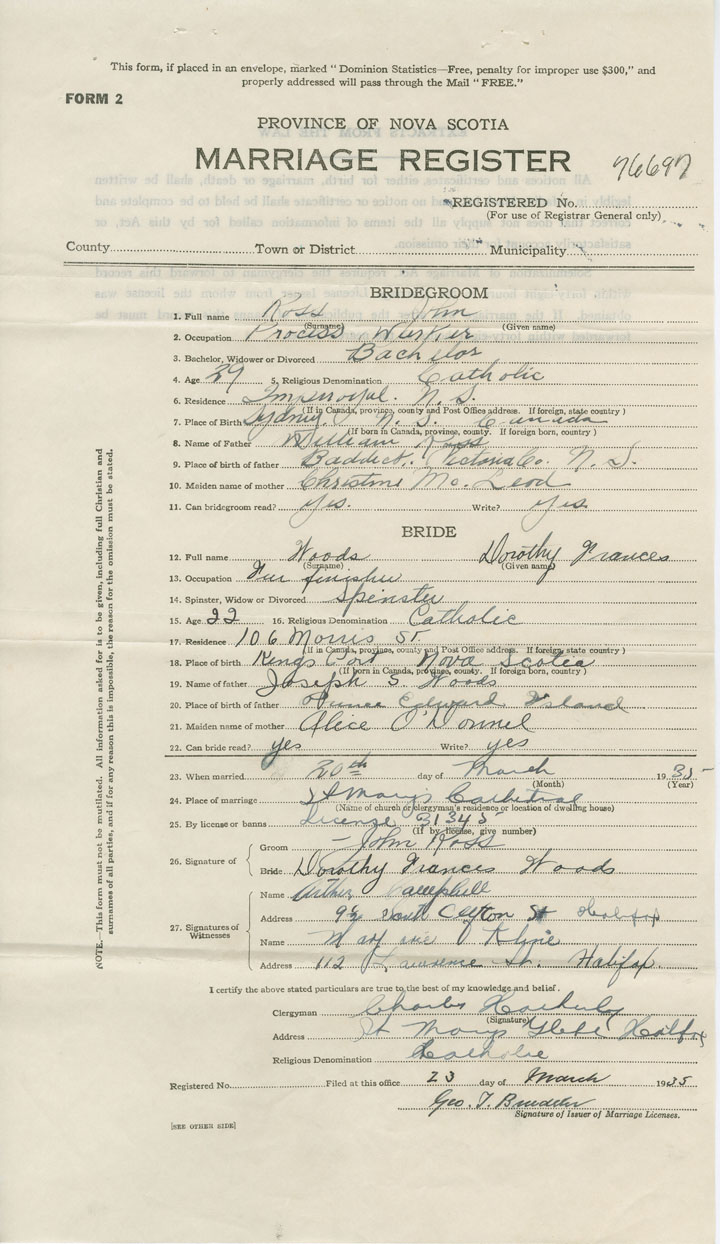 This form, if placed in an envelope, marked " Dominion Statistics—Free, penalty for improper use $300," and
properly addressed will pass through the Mail " FREE."
FORM 2
PROVINCE OF NOVA SCOTIA
MARRIAGE REGISTER 76697
REGISTERED No.
(For use of Registrar General only)
County Town or District Municipality
BRIDEGROOM
1. Full name Ross John
(Surname) (Given name)
2. Occupation Process Worker
3. Bachelor, Widower or Divorced Bachelor
4. Age 29 5. Religious Denomination Catholic
6. Residence Imperoyal. N. S.
(If in Canada, province, county and Post Office address. If foreign, state country )
7. Place of Birth Sydney N. S. Canada
(If born in Canada, province, county. If foreign born, country )
8. Name of Father William Ross
9. Place of birth of father Baddeck, Victoria Co. N. S.
10. Maiden name of mother Christine Mc. Leod
11. Can bridegroom read? Yes. Write? Yes
BRIDE
12. Full name Woods Dorothy Frances
(Surname) (Given name)
13. Occupation Fur finisher
14. Spinster, Widow or Divorced Spinster
15. Age 22 16. Religious Denomination Catholic
17. Residence 106 Morris St
(If in Canada, province, county and Post Office address. If foreign state country )
18. Place of birth Kings Port Nova Scotia
(If born in Canada, province, county. If foreign born, country )
19. Name of father Joseph S. Woods
20. Place of birth of father Prince Edward Island
21. Maiden name of mother Alice O'Donnel
22. Can bride read? yes Write? yes
23. When married 20th day of March 1935
(Month) (Year)
24. Place of marriage St Marys Cathedral
(Name of church or clergyman's residence or location of dwelling house)
25. By license or banns License 31345
(If by license, give number)
26. Signature of
Groom John Ross
Bride Dorothy Frances Woods
27. Signatures of Witnesses
Name Arthur Campbell
Address Clifton St Halifax
Name Kline
Address 112 Lawrence St. Halifax.
I certify the above stated particulars are true to the best of my knowledge and belief.
Clergyman Charles
(Signature)
Address St Marys Glebe Halifax
Religious Denomination Catholic
Registered No. Filed at this office 23 day of March 1935
Geo. T.
Signature of Issuer of Marriage Licenses.
[SEE OTHER SIDE]
NOTE.—This form must not be mutilated. All information asked for is to be given, including full Christian and
surnames of all parties, and if for any reason this is impossible, the reason for the omission must be stated.